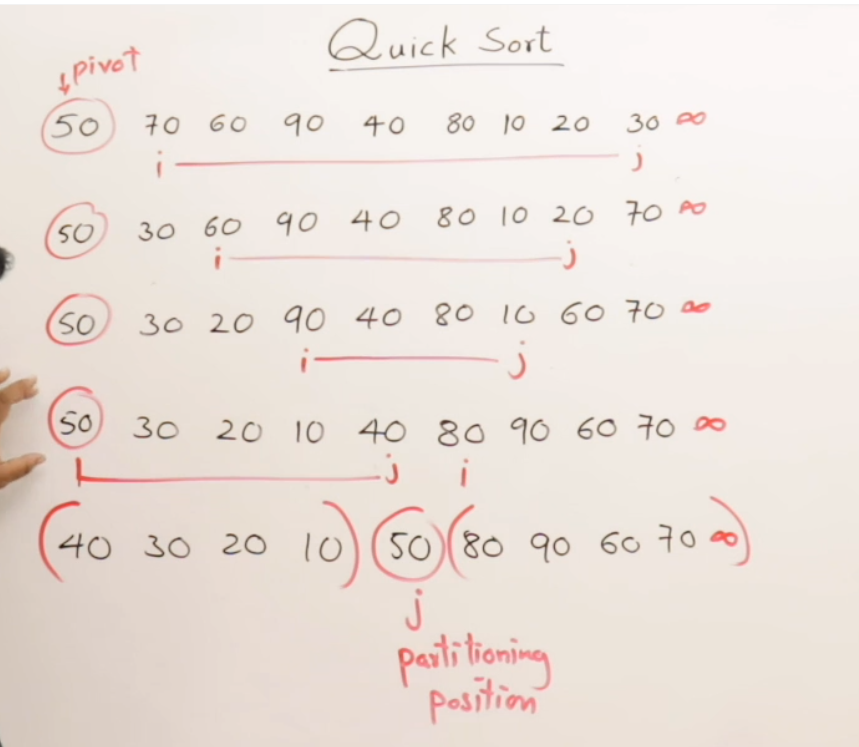 Quick Sort
↓pivot
50 70 60 90 40 80 10 20 30 ∞
i j
50 30 60 90 40 80 10 20 70 ∞
i j
50 30 20 90 40 80 10 60 70 ∞
i j
50 30 20 10 40 80 90 60 70 ∞
j i
(40 30 20 10) 50 (80 90 60 70 ∞)
j
partitioning
position